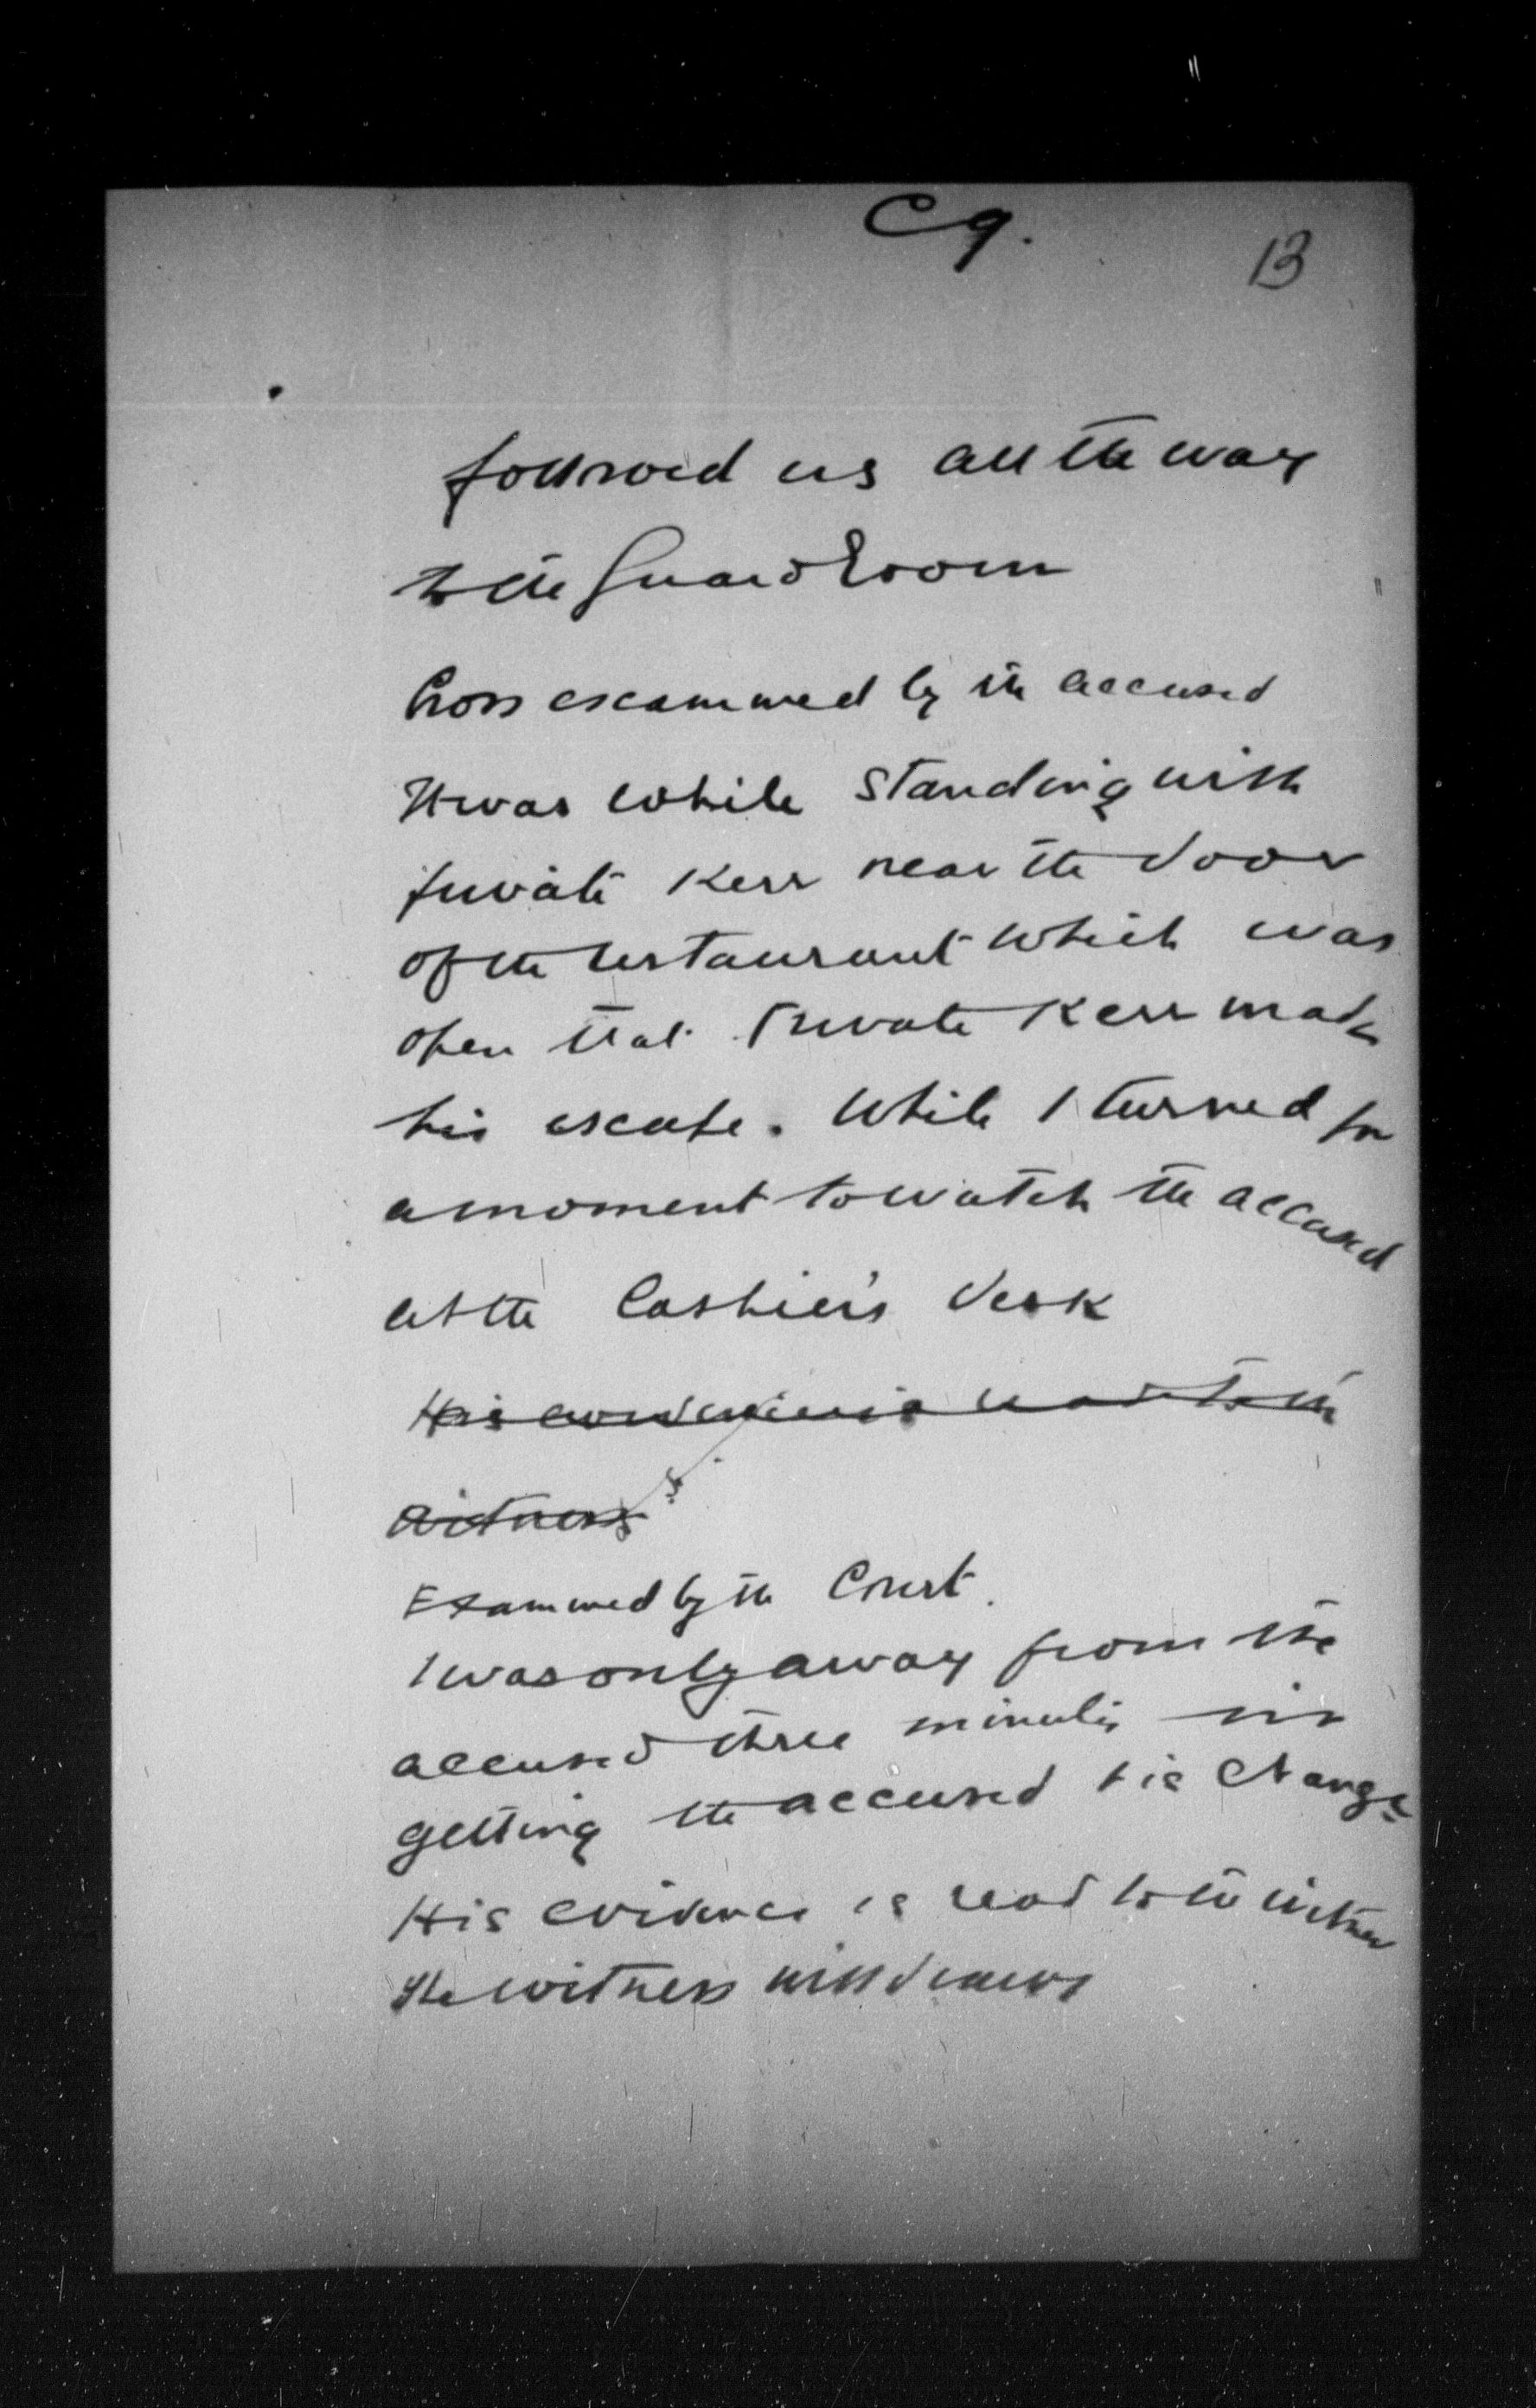 C9.
13
followed us all the way
to the Guard Room
Cross examined by the accused
It was while standing with
private Kerr near the door
of the restaurant which was
open that Private Kerr made
his escape. While I turned for
a moment to watch the accused
at the Cashier's desk
His evidence is read to the
witness
Examined by the Court.
I was only away from the
accused three minutes in
getting the accused his change
His evidence is read to the witness
The witness withdraws